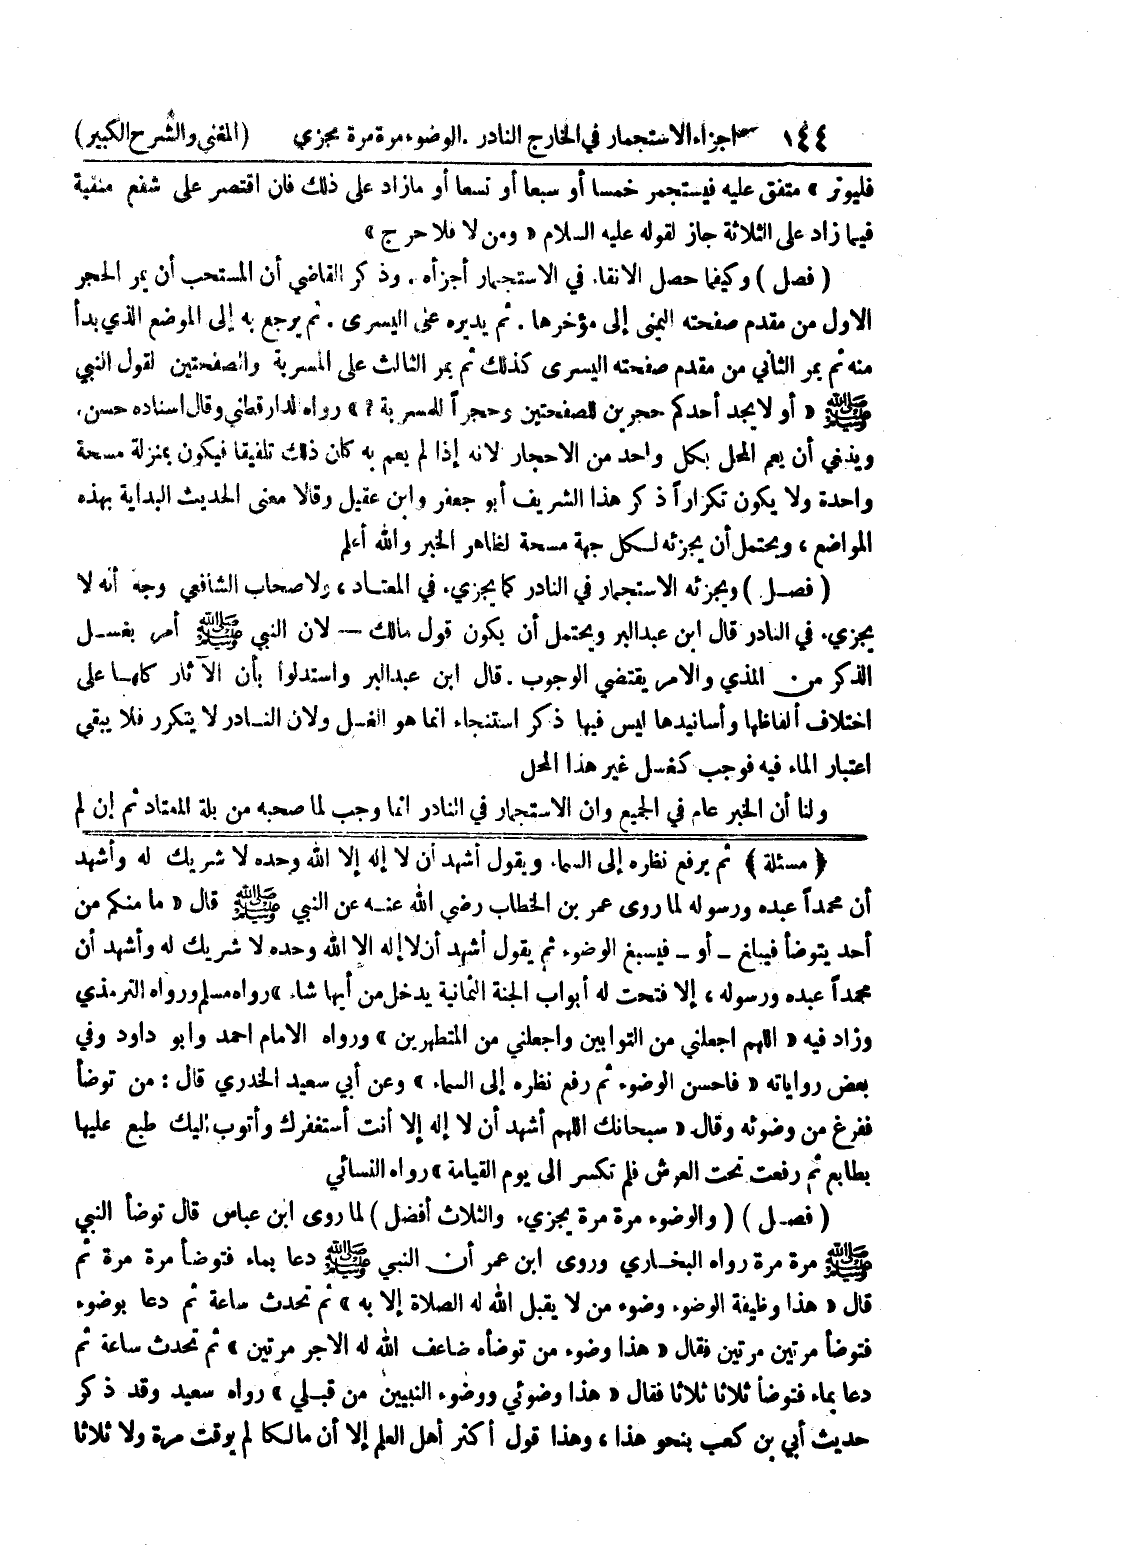 ١٤٤ اجزاء الاستجمار في الخارج النادر . الوضوء مرة مرة مجزي (المغني والشرح الكبير)
فليوتر » متفق عليه فيستجمر خمسا أو سبعا أو تسعا أو مازاد على ذلك فان اقتصر على شفع منقية
فيما زاد على الثلاثة جاز لقوله عليه السلام « ومن لا فلا حرج »
( فصل ) وكيفما حصل الانقاء في الاستجمار أجزأه . وذكر القاضي أن المستحب أن يمر الحجر
الاول من مقدم صفحته اليمنى إلى مؤخرها . ثم يديره على اليسرى . ثم يرجع به إلى الموضع الذي بدأ
منه ثم يمر الثاني من مقدم صفحته اليسرى كذلك ثم يمر الثالث على المسربة والصفحتين لقول النبي
ﷺ « أو لا يجد أحدكم حجرين للصفحتين وحجراً للمسربة ؟ » رواه الدارقطني وقال اسناده حسن،
وينبغي أن يعم المحل بكل واحد من الاحجار لانه إذا لم يعم به كان ذلك تلفيقا فيكون بمنزلة مسحة
واحدة ولا يكون تكراراً ذكر هذا الشريف أبو جعفر وابن عقيل وقالا معنى الحديث البداية بهذه
المواضع ، ويحتمل أن يجزئه لكل جهة مسحة لظاهر الخبر والله أعلم
( فصل ) ويجزئه الاستجمار في النادر كما يجزيء في المعتاد ، ولاصحاب الشافعي وجه أنه لا
يجزيء في النادر قال ابن عبدالبر ويحتمل أن يكون قول مالك — لان النبي ﷺ أمر بغسل
الذكر من المذي والامر يقتضي الوجوب . قال ابن عبدالبر واستدلوا بأن الآثار كلها على
اختلاف ألفاظها وأسانيدها ليس فيها ذكر استنجاء انما هو الغسل ولان النادر لا يتكرر فلا يبقى
اعتبار الماء فيه فوجب كغسل غير هذا المحل
ولنا أن الخبر عام في الجميع وان الاستجمار في النادر انما وجب لما صحبه من بلة المعتاد ثم إن لم
﴿ مسئلة ﴾ ثم يرفع نظره إلى السماء ويقول أشهد أن لا إله إلا الله وحده لا شريك له وأشهد
أن محمداً عبده ورسوله لما روى عمر بن الخطاب رضي الله عنه عن النبي ﷺ قال « ما منكم من
أحد يتوضأ فيبلغ - أو - فيسبغ الوضوء ثم يقول أشهد أن لا إله الا الله وحده لا شريك له وأشهد أن
محمداً عبده ورسوله ، إلا فتحت له أبواب الجنة الثمانية يدخل من أيها شاء » رواه مسلم ورواه الترمذي
وزاد فيه « اللهم اجعلني من التوابين واجعلني من المتطهرين » ورواه الامام احمد وابو داود وفي
بعض رواياته « فاحسن الوضوء ثم رفع نظره إلى السماء » وعن أبي سعيد الخدري قال : من توضأ
ففرغ من وضوئه وقال « سبحانك اللهم أشهد أن لا إله إلا أنت أستغفرك وأتوب اليك طبع عليها
بطابع ثم رفعت تحت العرش فلم تكسر الى يوم القيامة » رواه النسائي
( فصل ) ( والوضوء مرة مرة يجزيء والثلاث أفضل ) لما روى ابن عباس قال توضأ النبي
ﷺ مرة مرة رواه البخاري وروى ابن عمر أن النبي ﷺ دعا بماء فتوضأ مرة مرة ثم
قال « هذا وظيفة الوضوء وضوء من لا يقبل الله له الصلاة إلا به » ثم تحدث ساعة ثم دعا بوضوء
فتوضأ مرتين مرتين فقال « هذا وضوء من توضأه ضاعف الله له الاجر مرتين » ثم تحدث ساعة ثم
دعا بماء فتوضأ ثلاثا ثلاثا فقال « هذا وضوئي ووضوء النبيين من قبلي » رواه سعيد وقد ذكر
حديث أبي بن كعب بنحو هذا ، وهذا قول أكثر أهل العلم إلا أن مالكا لم يوقت مرة ولا ثلاثا